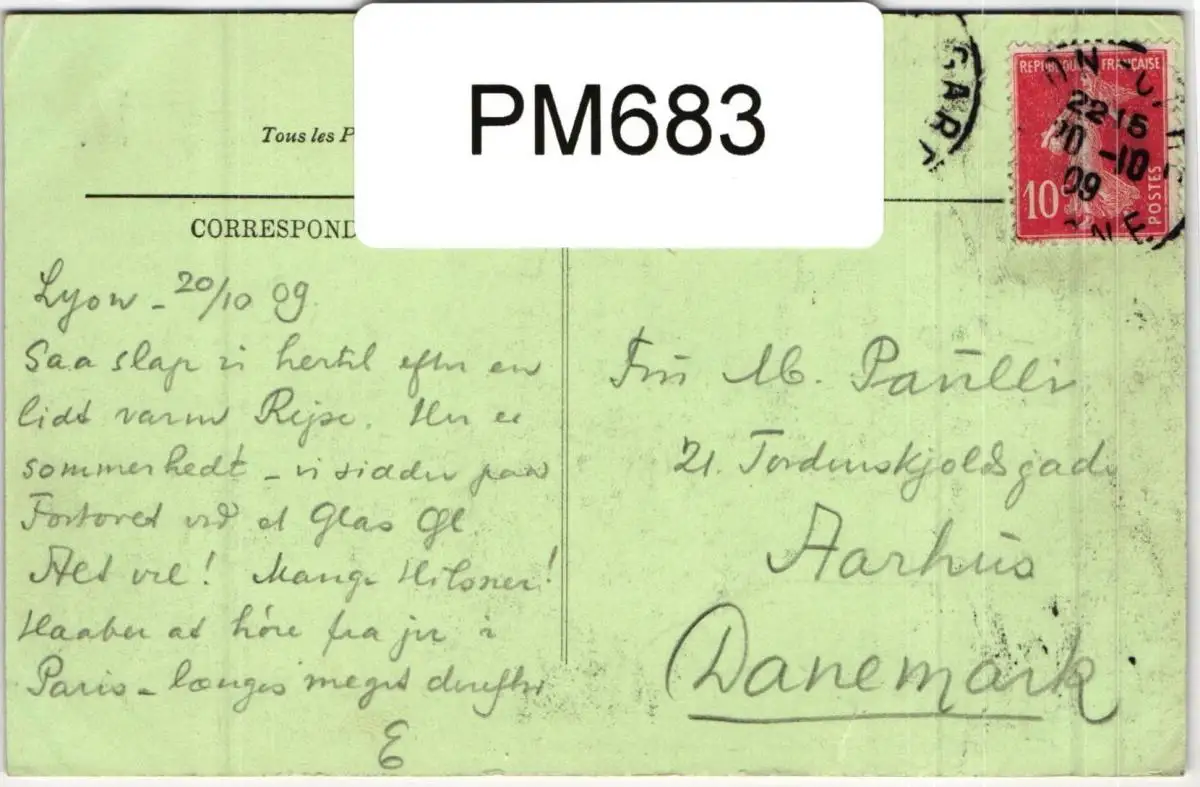 PM683
Tous les P
CORRESPOND
GARE
REPUBLIQUE FRANÇAISE
22 15
20 -10
09
10
POSTES
Lyon - 20/10 09.
Saa slap vi hertil efter en
lidt varm Rejse. Her er
sommerhedt - vi sidder paa
Fortovet ved et Glas Øl.
Alt vel! Mange Hilsner!
Haaber at höre fra jer i
Paris - længes meget derefter
E
Fru M. Paulli
21. Tordenskjoldsgade
Aarhus
Danemark